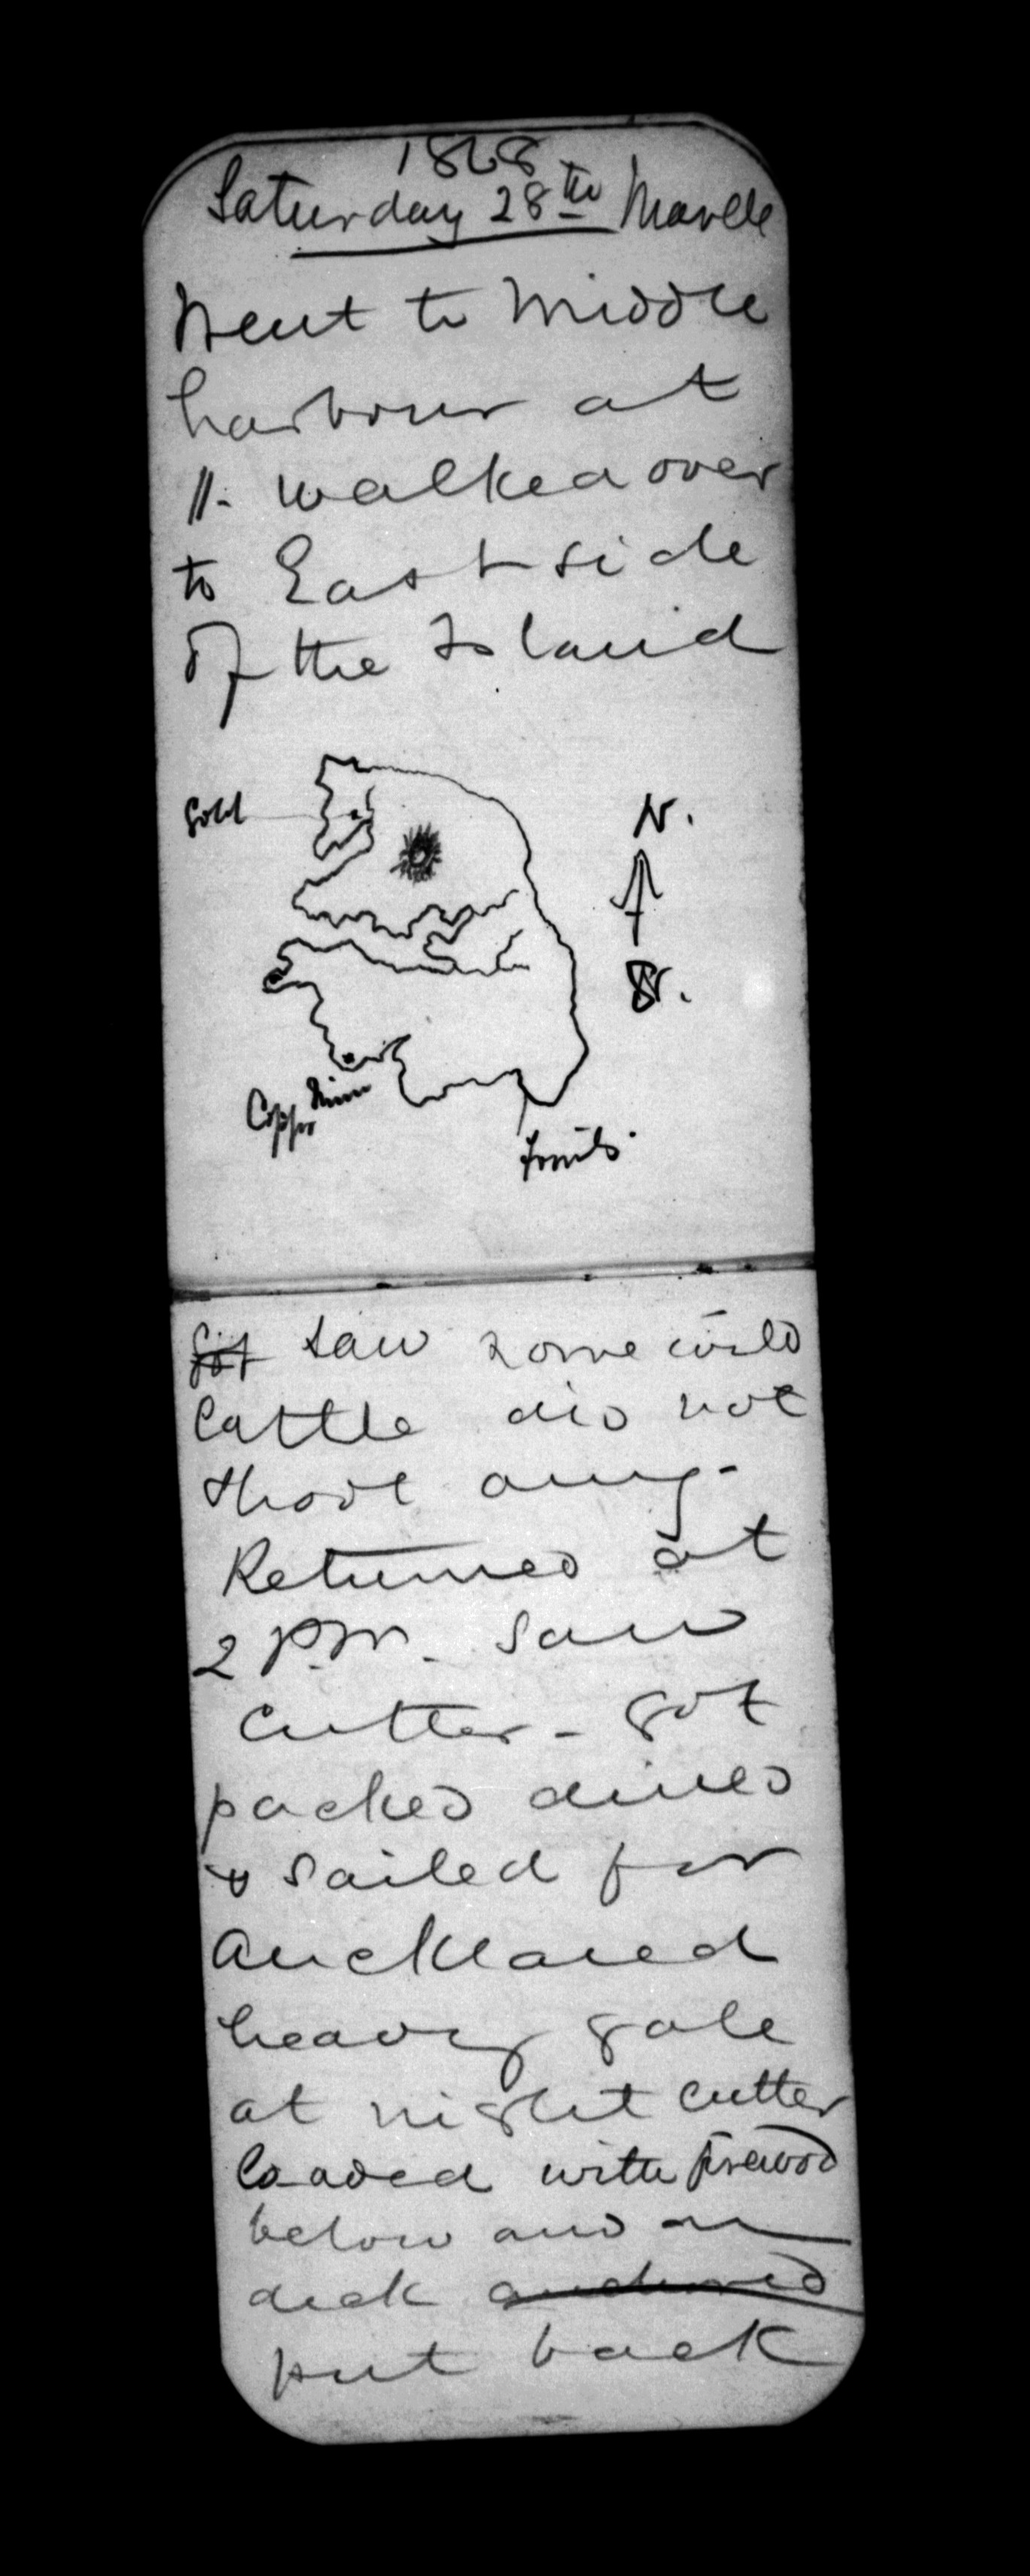 1868
Saturday 28th March
Went to Middle
harbour at
11- walked over
to East side
of the Island
Gold
N.
S.
Copper Mine
Fossils.
Got saw some wild
Cattle did not
shoot any-
Returned at
2 P.M. saw
cutter - got
packed dined
& sailed for
Auckland
heavy gale
at night cutter
loaded with firewood
below and on
deck anchored
put back